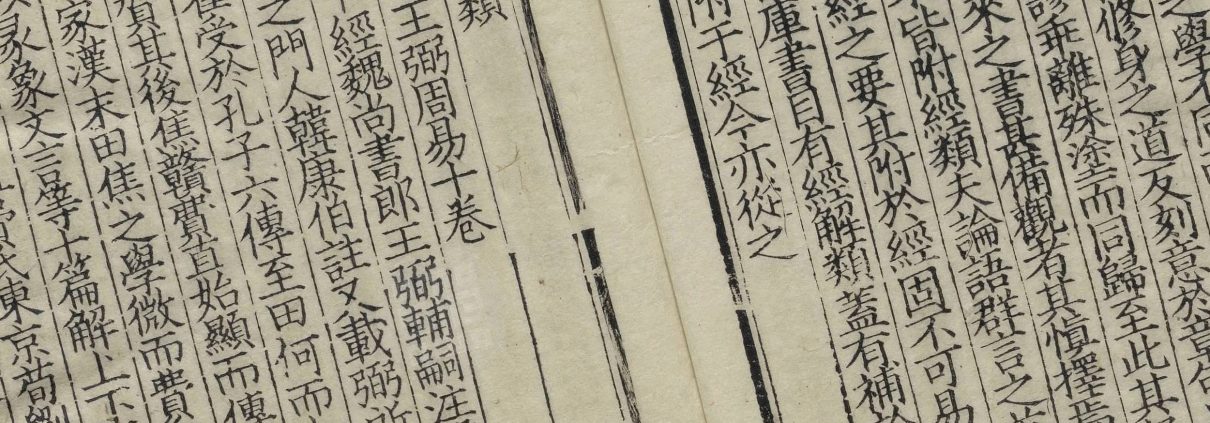 之學不同
修身之道反刻意於章句
乖離殊塗而同歸至此其
來之書甚備觀者其慎擇焉
皆附經類夫論語群言之
經之要其附於經固不可易
庫書目有經解類蓋有補於
附于經今亦從之
類
王弼周易十卷
經魏尚書郎王弼輔嗣注
之門人韓康伯註又載弼所
受於孔子六傳至田何而
其後焦贛費直始顯而傳
家漢末田焦之學微而費
彖象文言等十篇解上下
東京荀劉